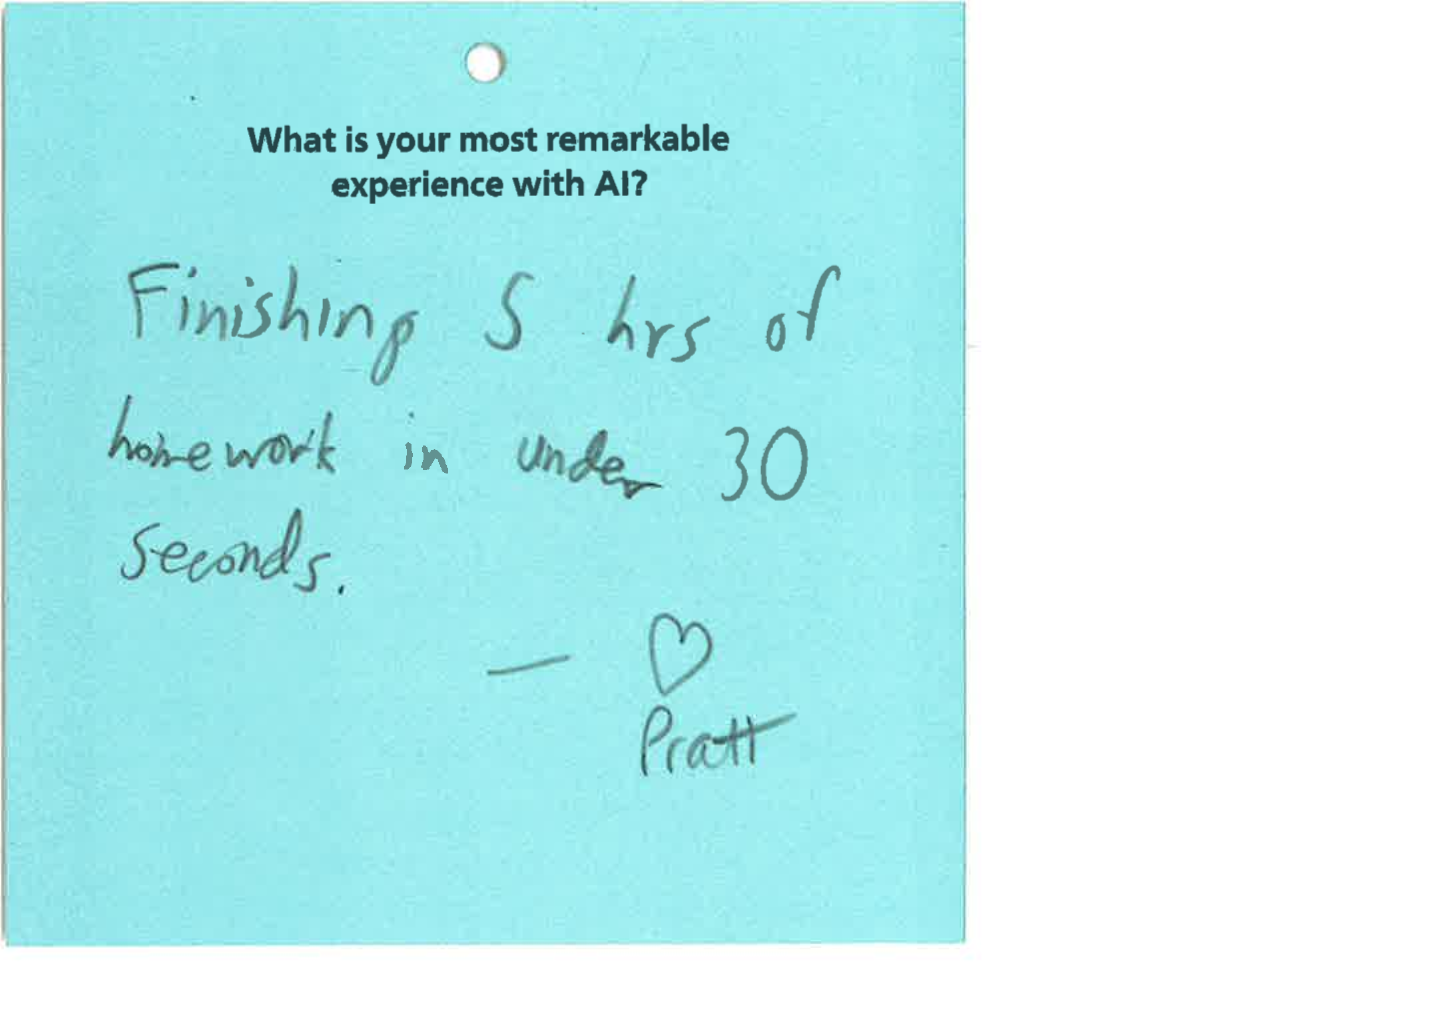 What is your most remarkable
experience with AI?
Finishing 5 hrs of
homework in under 30
seconds.
— ♡
Pratt